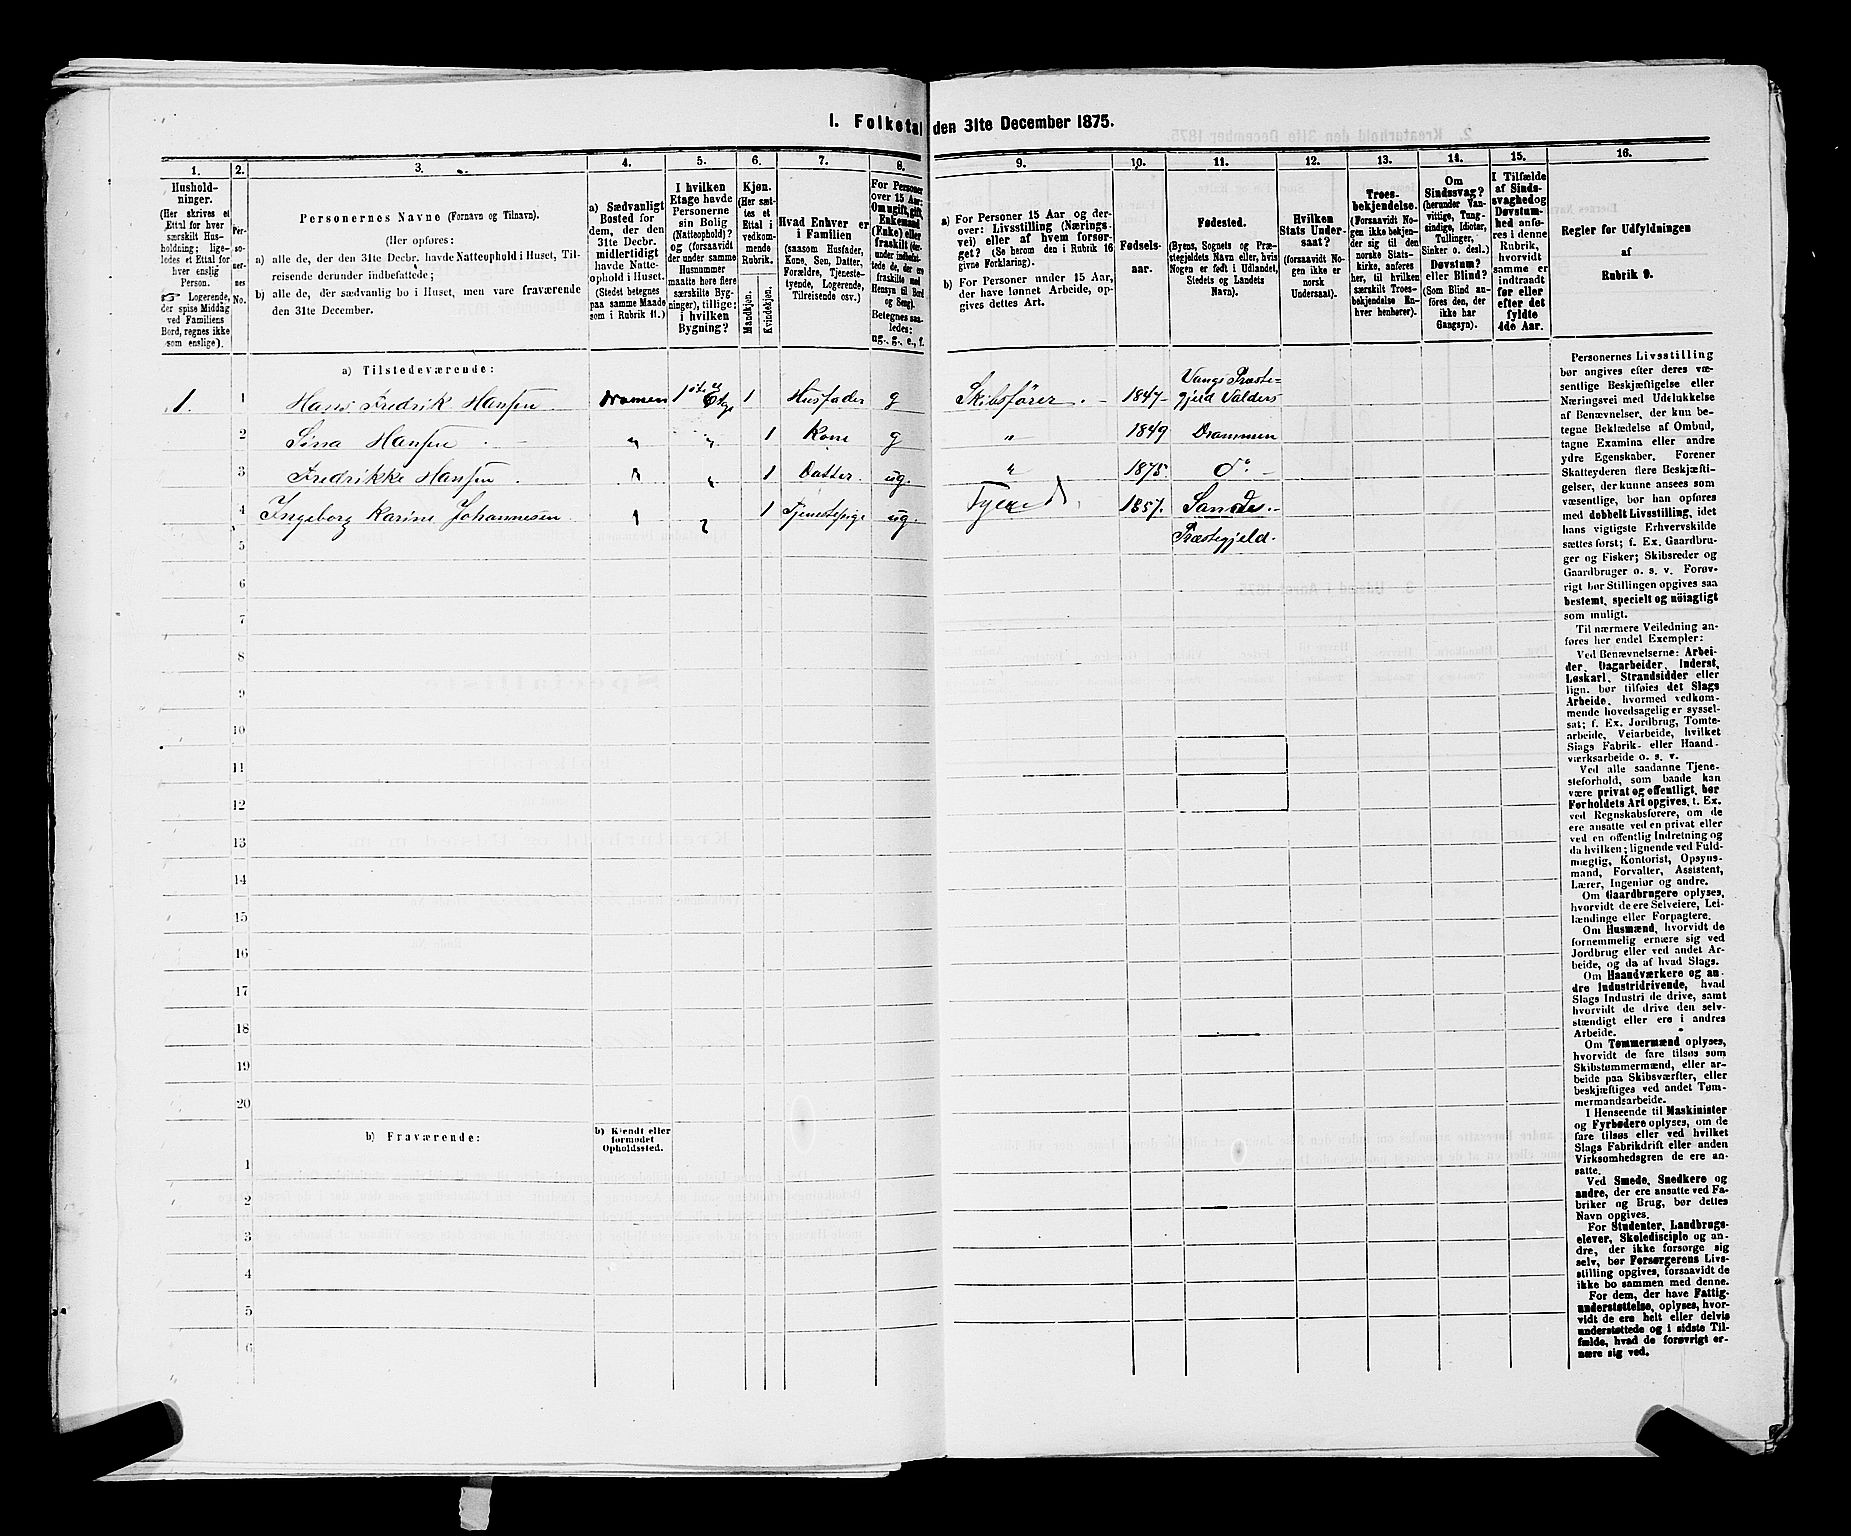 1. Folketal den 31te December 1875.
1.
2.
3.
4.
5.
6.
7.
8.
9.
10.
11.
12.
13.
14.
15.
16.
Hushold-
ninger.
(Her skrives et
Ettal for hver
særskilt Hus-
holdning; lige-
ledes et Ettal for
hver enslig
Person.
☞ Logerende,
der spise Middag
ved Familiens
Bord, regnes ikke
som enslige).
Per-
so-
ner-
nes
No.
Personernes Navne (Fornavn og Tilnavn).
(Her opføres:
a) alle de, der den 31te Decbr. havde Natteophold i Huset, Til-
reisende derunder indbefattede;
b) alle de, der sædvanlig bo i Huset, men vare fraværende
den 31te December.
a) Sædvanligt
Bosted for
dem, der den
31te Decbr.
midlertidigt
havde Natte-
ophold i Huset.
(Stedet betegnes
paa samme Maade
som i Rubrik 11.)
I hvilken
Etage havde
Personerne
sin Bolig
(Natteophold)?
og (forsaavidt
der under samme
Husnummer
maatte høre flere
særskilte Byg-
ninger), tillige:
i hvilken
Bygning?
Kjøn.
(Her sæt-
tes et
Ettal i
vedkom-
mende
Rubrik.
Mandkjøn.
Kvindekjøn.
Hvad Enhver er
i Familien
(saasom Husfader,
Kone, Søn, Datter,
Forældre, Tjeneste-
tyende, Logerende,
Tilreisende osv.)
For Personer
over 15 Aar:
Om ugift, gift,
Enkemand
(Enke) eller
fraskilt (der-
under indbefat-
tede de, der ere
fraskilte med
Hensyn til Bord
og Seng).
Betegnes saa-
ledes:
ug., g., e., f.
a) For Personer 15 Aar og der-
over: Livsstilling (Nærings-
vei) eller af hvem forsør-
get? (Se herom den i Rubrik 16
givne Forklaring).
b) For Personer under 15 Aar,
der have lønnet Arbeide, op-
gives dettes Art.
Fødsels-
aar.
Fødested.
(Byens, Sognets og Præ-
stegjeldets Navn eller, hvis
Nogen er født i Udlandet,
Stedets og Landets
Navn).
Hvilken
Stats Under-
saat?
(forsaavidt No-
gen ikke er
norsk
Undersaat).
Troes-
bekjendelse.
(Forsaavidt No-
gen ikke bekjen-
der sig til den
norske Stats-
kirke, anføres
her, til hvilken
særskilt Troes-
bekjendelse En-
hver henhører).
Om
Sindssvag?
(herunder Van-
vittige, Tung-
sindige, Idioter,
Tullinger,
Sinker o. desl.)
Døvstum?
eller Blind?
(Som Blind an-
føres den, der
ikke har
Gangsyn).
I Tilfælde
af Sinds-
svaghed og
Døvstum-
hed anfø-
res i denne
Rubrik,
hvorvidt
samme er
indtraadt
før eller
efter det
fyldte
4de Aar.
Regler for Udfyldningen
af
Rubrik 9.
a) Tilstedeværende:
1. 1 Hans Fredrik Hansen Dramen 1ste Etge 1 Husfader g Skibsfører 1847 Vangs Præste-
gjeld Valders
2 Sina Hansen „ „ 1 Kone g „ 1849 Drammen
3 Fredrikke Hansen „ „ 1 Datter ug. „ 1875 do.
4 Ingeborg Karine Johannesen 1 Tjenestepige ug. 1857. Sande
5 Præstegjeld.
6
7
8
9
10
11
12
13
14
15
16
17
18
19
20
b) Fraværende:
b) Kjendt eller
formodet
Opholdssted.
1
2
3
4
5
6
Personernes Livsstilling
bør angives efter deres væ-
sentlige Beskjæftigelse eller
Næringsvei med Udelukkelse
af Benævnelser, der kun be-
tegne Beklædelse af Ombud,
tagne Examina eller andre
ydre Egenskaber. Forener
Skatteyderen flere Beskjæfti-
gelser, der kunne ansees som
væsentlige, bør han opføres
med dobbelt Livsstilling, idet
hans vigtigste Erhvervskilde
sættes først; f. Ex. Gaardbru-
ger og Fisker; Skibsreder og
Gaardbruger o. s. v. Forøv-
rigt bør Stillingen opgives saa
bestemt, specielt og nöiagtigt
som muligt.
Til nærmere Veiledning an-
føres her endel Exempler:
Ved Benævnelserne: Arbei-
der, Dagarbeider, Inderst,
Løskarl, Strandsidder eller
lign. bør tilføies det Slags
Arbeide, hvormed vedkom-
mende hovedsagelig er syssel-
sat; f. Ex. Jordbrug, Tomte-
arbeide, Veiarbeide, hvilket
Slags Fabrik- eller Haand-
værksarbeide o. s. v.
Ved alle saadanne Tjene-
steforhold, som baade kan
være privat og offentligt, bør
Forholdets Art opgives, t. Ex.
ved Regnskabsførere, om de
ere ansatte ved en privat eller
ved en offentlig Indretning og
da hvilken; lignende ved Fuld-
mægtig, Kontorist, Opsyns-
mand, Forvalter, Assistent,
Lærer, Ingeniør og andre.
Om Gaardbrugere oplyses,
hvorvidt de ere Selveiere, Lei-
lændinge eller Forpagtere.
Om Husmænd, hvorvidt de
fornemmelig ernære sig ved
Jordbrug eller ved andet Ar-
beide, og da af hvad Slags.
Om Haandværkere og an-
dre Industridrivende, hvad
Slags Industri de drive, samt
hvorvidt de drive den selv-
stændigt eller ere i andres
Arbeide.
Om Tømmermænd oplyses,
hvorvidt de fare tilsøs som
Skibstømmermænd, eller ar-
beide paa Skibsværfter, eller
beskjæftiges ved andet Tøm-
mermandsarbeide.
I Henseende til Maskinister
og Fyrbødere oplyses, om de
fare tilsøs eller ved hvilket
Slags Fabrikdrift eller anden
Virksomhedsgren de ere an-
satte.
Ved Smede, Snedkere og
andre, der ere ansatte ved Fa-
briker og Brug, bør dettes
Navn opgives.
For Studenter, Landbrugs-
elever, Skoledisciple og an-
dre, der ikke forsørge sig
selv, bør Forsørgerens Livs-
stilling opgives, forsaavidt de
ikke bo sammen med denne.
For dem, der have Fattig-
understøttelse, oplyses, hvor-
vidt de ere helt eller delvis
understøttede og i sidste Til-
fælde, hvad de forøvrigt er-
nære sig ved.